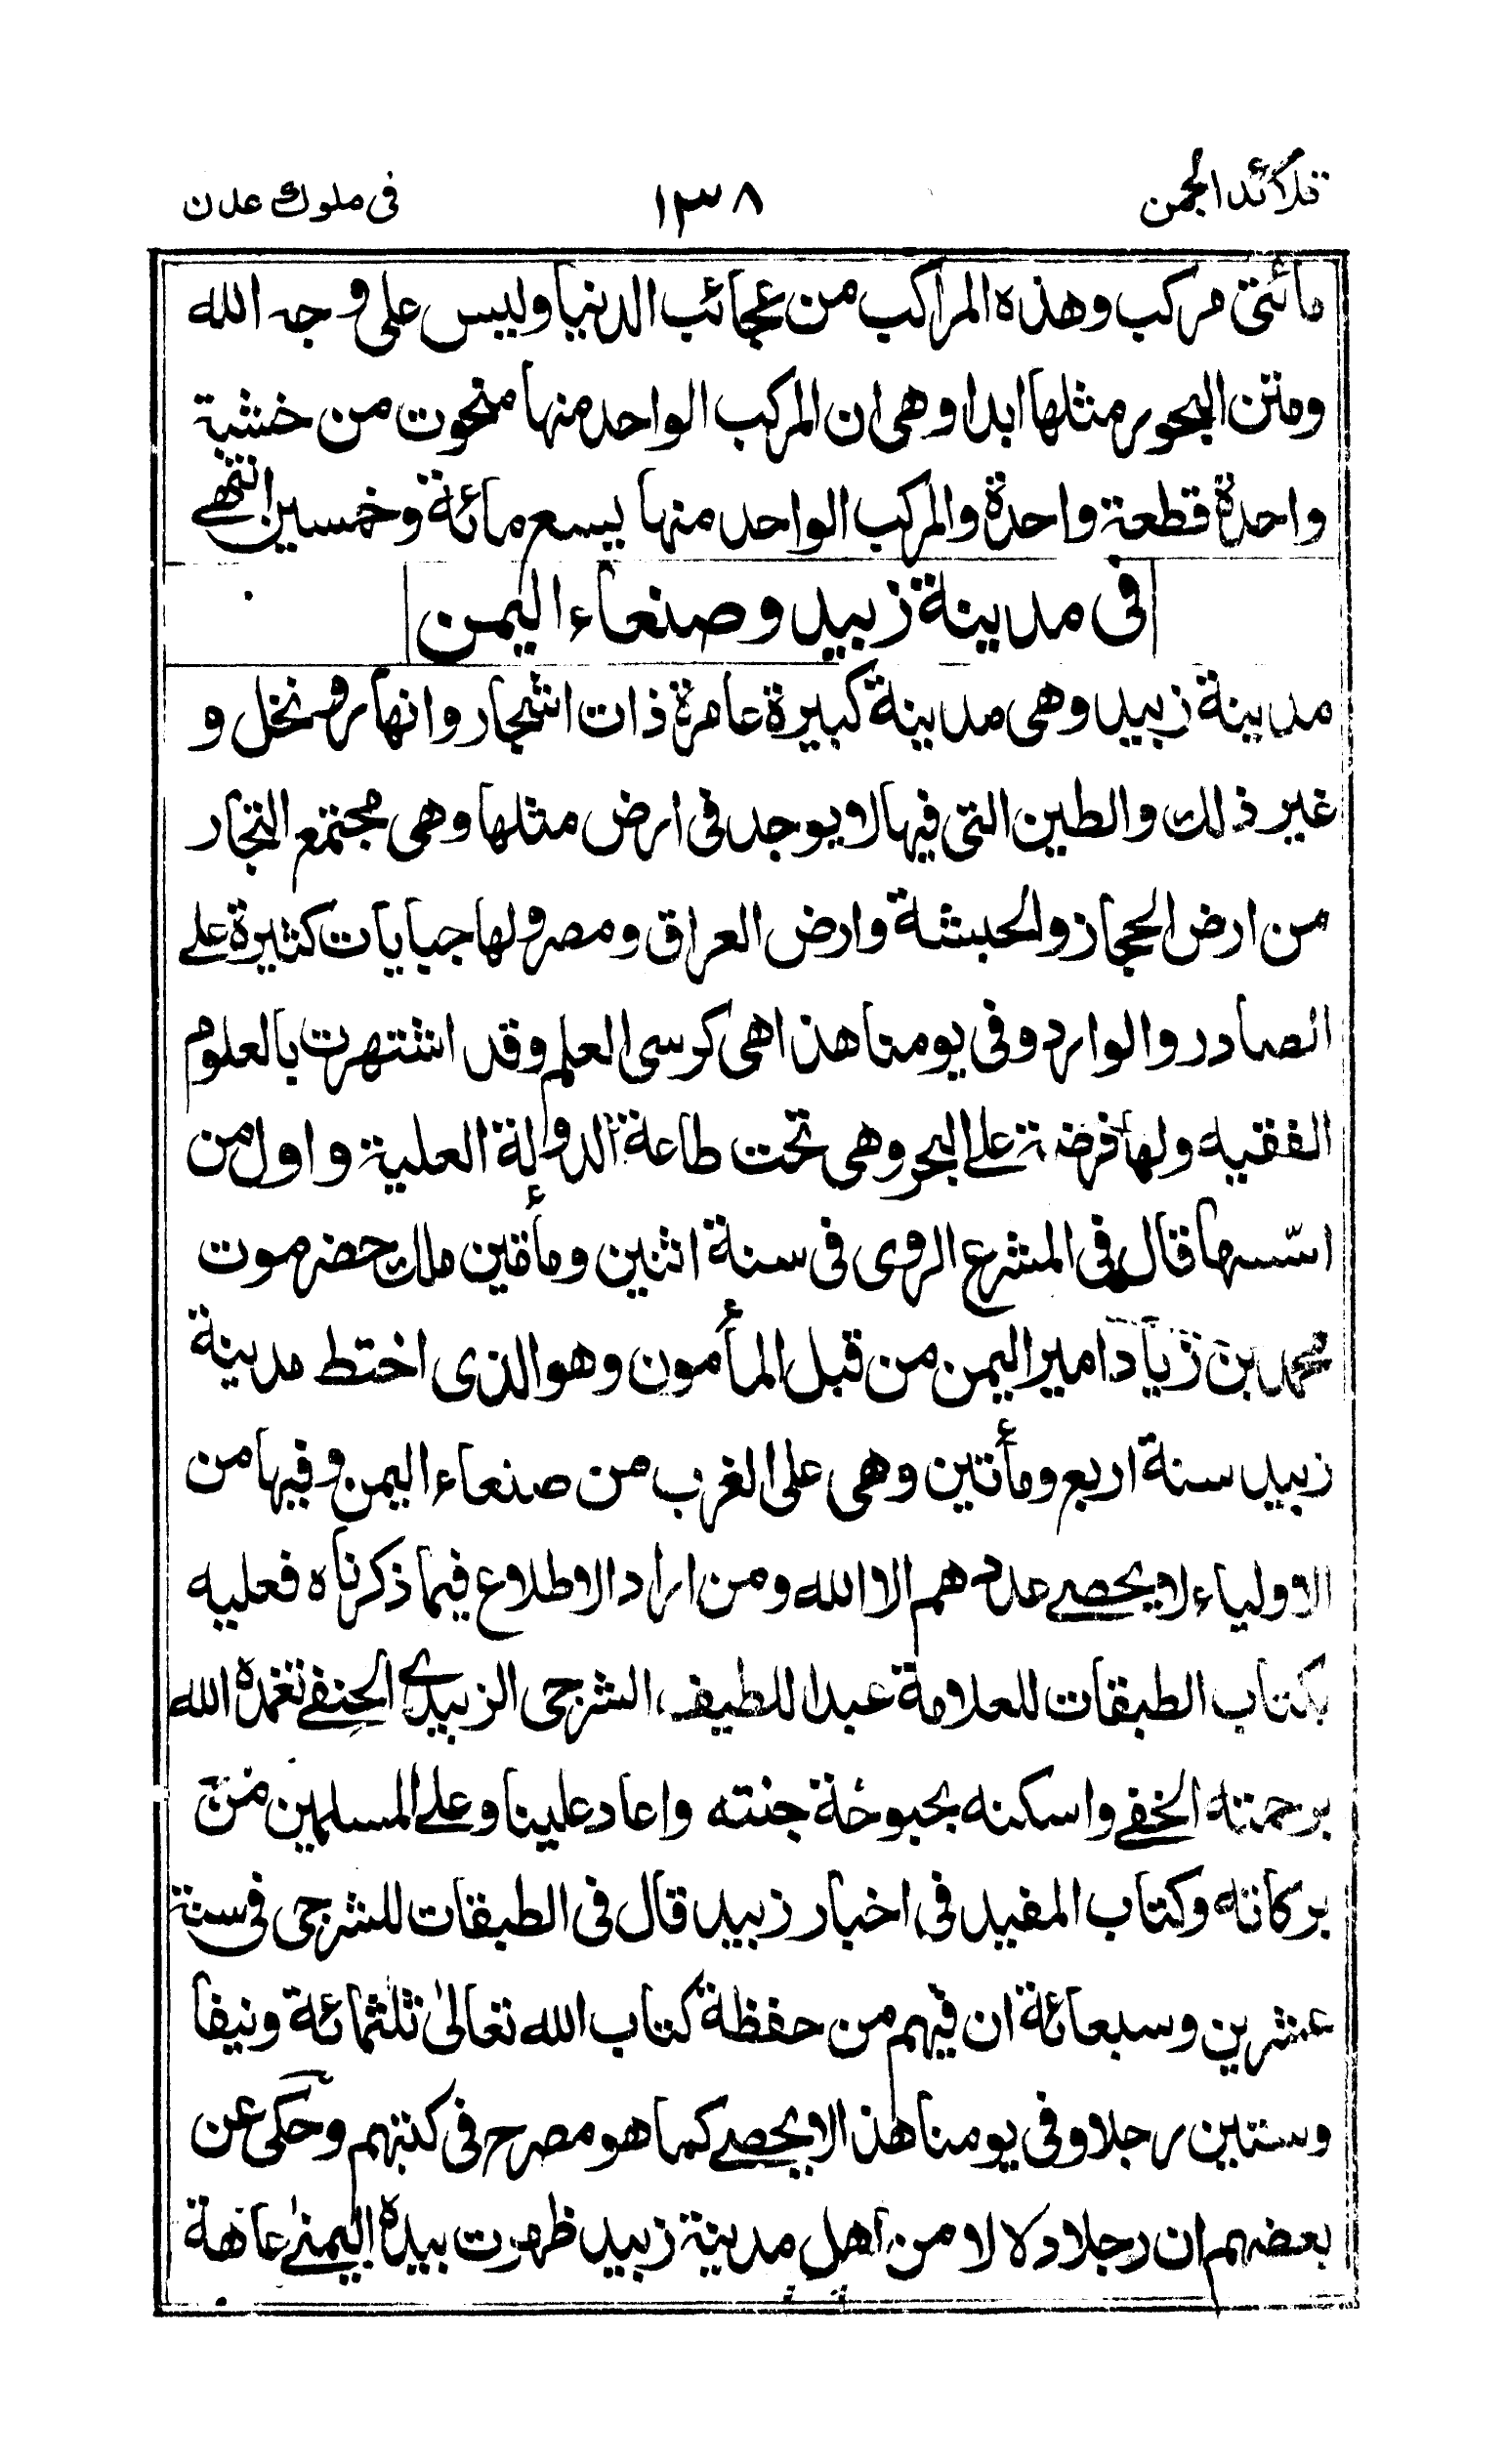 قلائد الجمن ١٣٨ فى ملوك عدن
مائتى مركب وهذه المراكب من عجائب الدنيا وليس على وجه الله
ومتن البحور مثلها ابدا وهى ان المركب الواحد منها منحوت من خشبة
واحدة قطعة واحدة والمركب الواحد منها يسع مائة وخمسين انتهى
فى مدينة زبيد وصنعاء اليمن
مدينة زبيد وهى مدينة كبيرة عامرة ذات اشجار وانهار ونخل و
غير ذلك والطين التى فيها لا يوجد فى ارض مثلها وهى مجتمع التجار
من ارض الحجاز والحبشة وارض العراق ومصر ولها جبايات كثيرة على
الصادر والوارد وفى يومنا هذا هى كرسى العلم وقد اشتهرت بالعلوم
الفقيه ولها فرضة على البحر وهى تحت طاعة الدولة العلية واول من
اسّسها قال فى المشرع الروى فى سنة اثنين ومأتين ملك حضرموت
محمد بن زياد امير اليمن من قبل المأمون وهو الذى اختط مدينة
زبيد سنة اربع ومأتين وهى على الغرب من صنعاء اليمن وفيها من
الاولياء لا يحصى عددهم الا الله ومن اراد الاطلاع فيما ذكرناه فعليه
بكتاب الطبقات للعلامة عبد اللطيف الشرجى الزبيدى الحنفى تغمده الله
برحمته الخفى واسكنه بحبوحة جنته واعاد علينا وعلى المسلمين من
بركاته وكتاب المفيد فى اخبار زبيد قال فى الطبقات للشرجى فى سنة
عشرين وسبعائة ان فيهم من حفظة كتاب الله تعالىٰ ثلثمائة ونيفا
وستين رجلا وفى يومنا هذا لا يحصى كما هو مصرح فى كتبهم وحكى عن
بعضهم ان رجلا دلالا من اهل مدينة زبيد ظهرت بيده اليمنىٰ عاهة